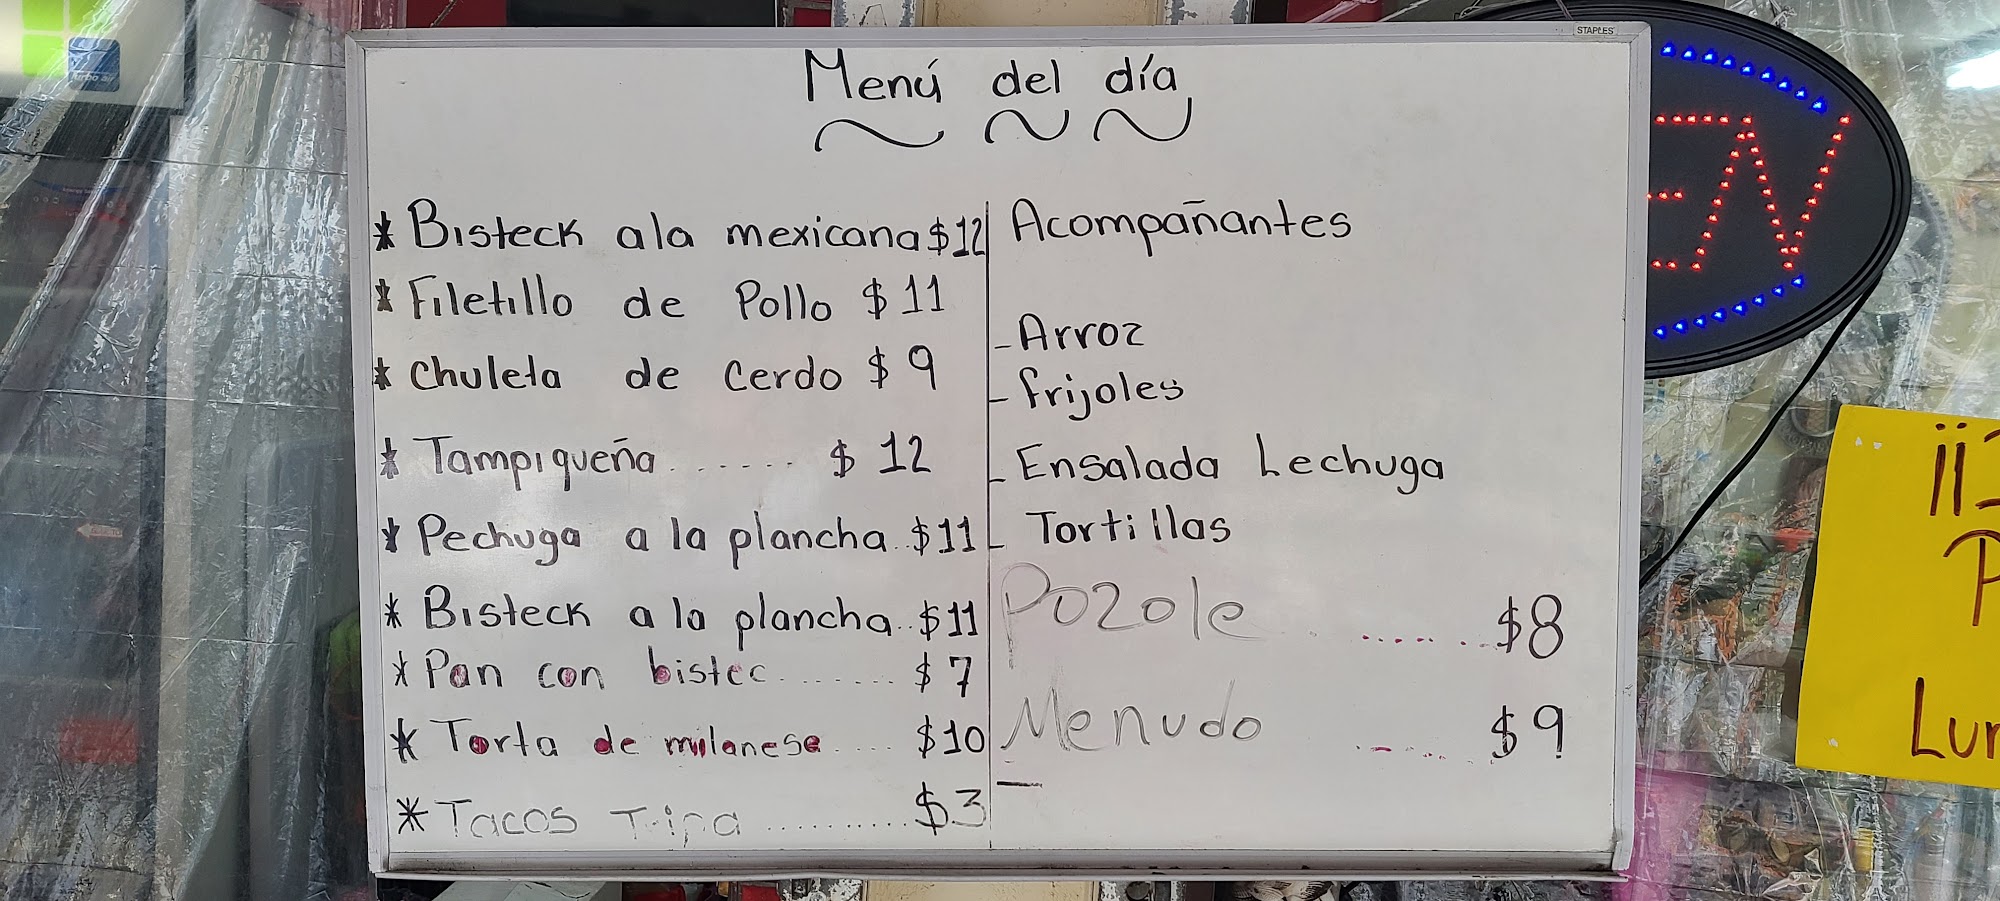 STAPLES
Menú del día
* Bisteck ala mexicana $12
* Filetillo de Pollo $11
* Chuleta de cerdo $9
* Tampiqueña ...... $12
* Pechuga a la plancha .. $11
* Bisteck a la plancha .. $11
* Pan con bistec ....... $7
* Torta de milanese .... $10
* Tacos Tripa .......... $3
Acompañantes
- Arroz
- frijoles
- Ensalada Lechuga
- Tortillas
Pozole ............ $8
Menudo ........ $9
EN
¡¡
P
Lun